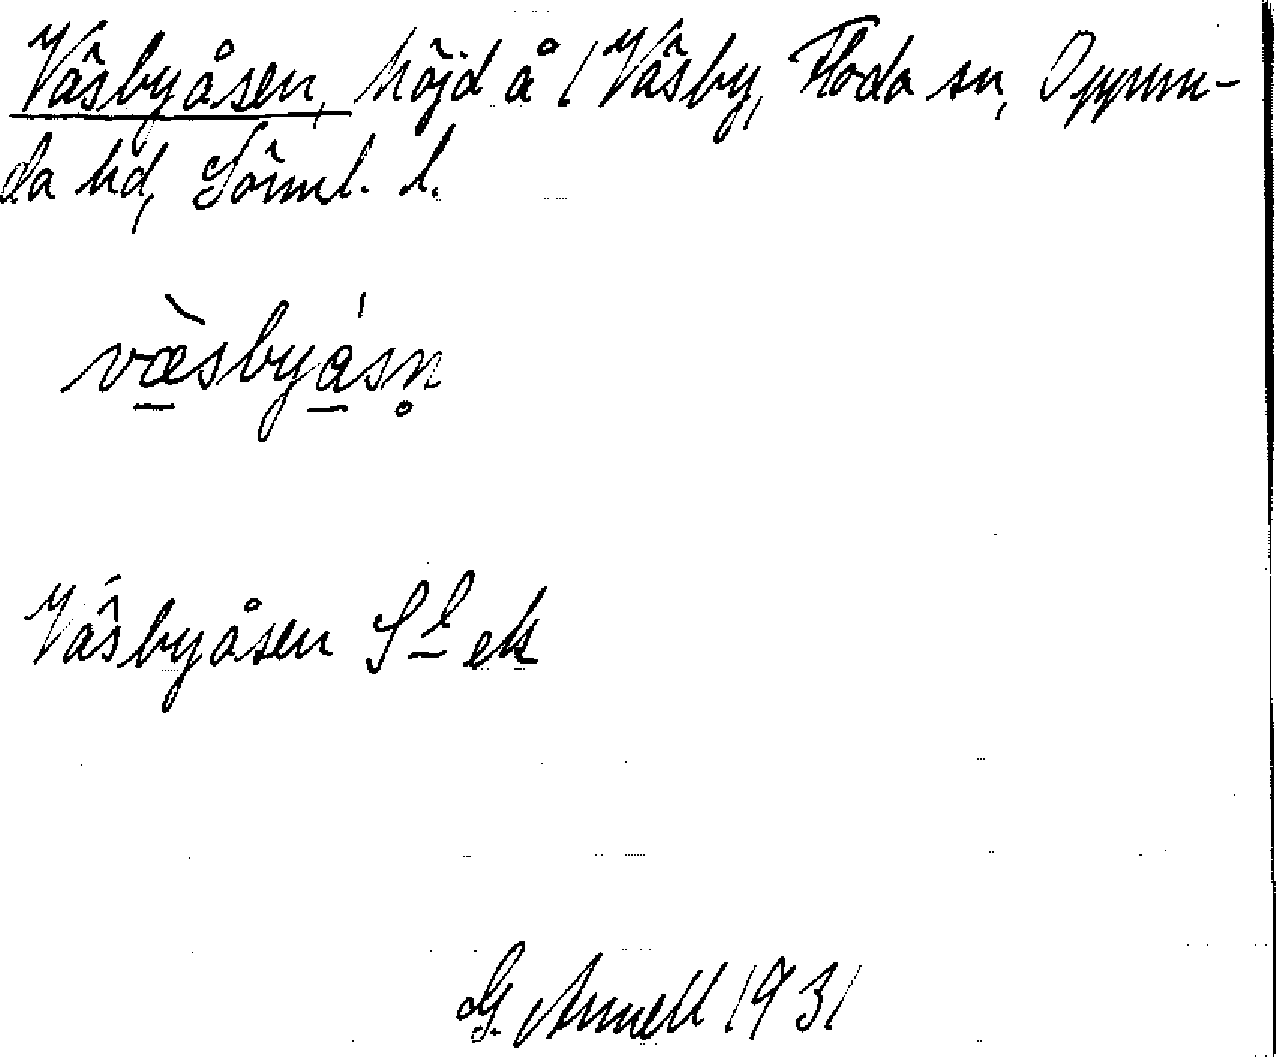 Väsbyåsen, höjd å / Väsby, Floda sn, Oppun-
da hd, Sörml. l.
væ̀sbyásn̥
Väsbyåsen Sͭ ek
G. Annell 1931